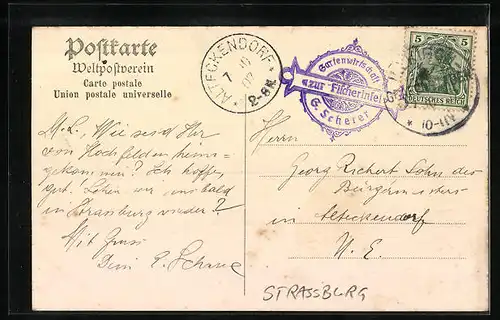 Postkarte
Weltpostverein
Carte postale
Union postale universelle
ALTECKENDORF
7 10
07
2-8N.
Gartenwirtschaft
"zur Fischerinsel"
G. Scherer
5 5
DEUTSCHES REICH
10-11V
M. L. Wie seid Ihr
von Hochfelden heim-
gekommen? Ich hoffe,
gut! Sehen wir uns bald
in Strassburg wieder?
Mit Gruss
Dein E.
Herrn
Georg Richert Sohn des
Bürgermeisters
in Alteckendorf
U. E.
STRASSBURG